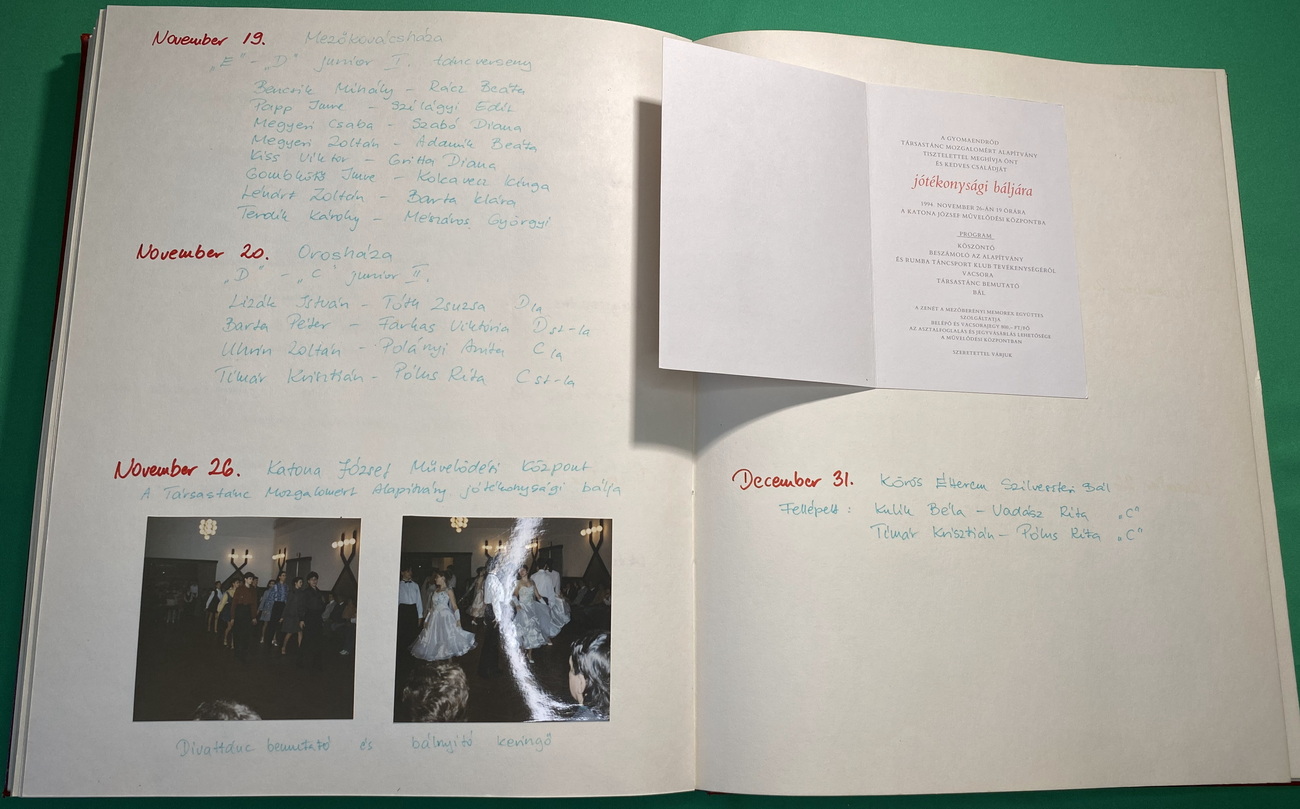 November 19. Mezőkovácsháza
„E" - „D" junior I. táncverseny
Bencsik Mihály - Rácz Beáta
Papp Imre - Szilágyi Edit
Megyeri Csaba - Szabó Diana
Megyeri Zoltán - Adamik Beáta
Kiss Viktor - Gritta Diana
Gombkötő Imre - Kolcavecz Kinga
Lénárt Zoltán - Barta Klára
Terdik Károly - Mészáros Györgyi
November 20. Orosháza
„D" - „C" junior II.
Lizák István - Tóth Zsuzsa D la
Barta Péter - Farkas Viktória D st-la
Uhrin Zoltán - Polányi Anita C la
Timár Krisztián - Pólus Rita C st-la
November 26. Katona József Művelődési Központ
A Társastánc Mozgalomért Alapítvány jótékonysági bálja
Divattánc bemutató és bálnyitó keringő
A GYOMAENDRŐD
TÁRSASTÁNC MOZGALOMÉRT ALAPÍTVÁNY
TISZTELETTEL MEGHÍVJA ÖNT
ÉS KEDVES CSALÁDJÁT
jótékonysági báljára
1994. NOVEMBER 26-ÁN 19 ÓRÁRA
A KATONA JÓZSEF MŰVELŐDÉSI KÖZPONTBA
PROGRAM
KÖSZÖNTŐ
BESZÁMOLÓ AZ ALAPÍTVÁNY
ÉS RUMBA TÁNCSPORT KLUB TEVÉKENYSÉGÉRŐL
VACSORA
TÁRSASTÁNC BEMUTATÓ
BÁL
A ZENÉT A MEZŐBERÉNYI MEMOREX EGYÜTTES
SZOLGÁLTATJA
BELÉPŐ ÉS VACSORAJEGY 800,- FT/FŐ
AZ ASZTALFOGLALÁS ÉS JEGYVÁSÁRLÁS LEHETŐSÉGE
A MŰVELŐDÉSI KÖZPONTBAN
SZERETETTEL VÁRJUK
December 31. Körös Étterem Szilveszteri Bál
Fellépett: Kulik Béla - Vadász Rita „C"
Timár Krisztián - Pólus Rita „C"